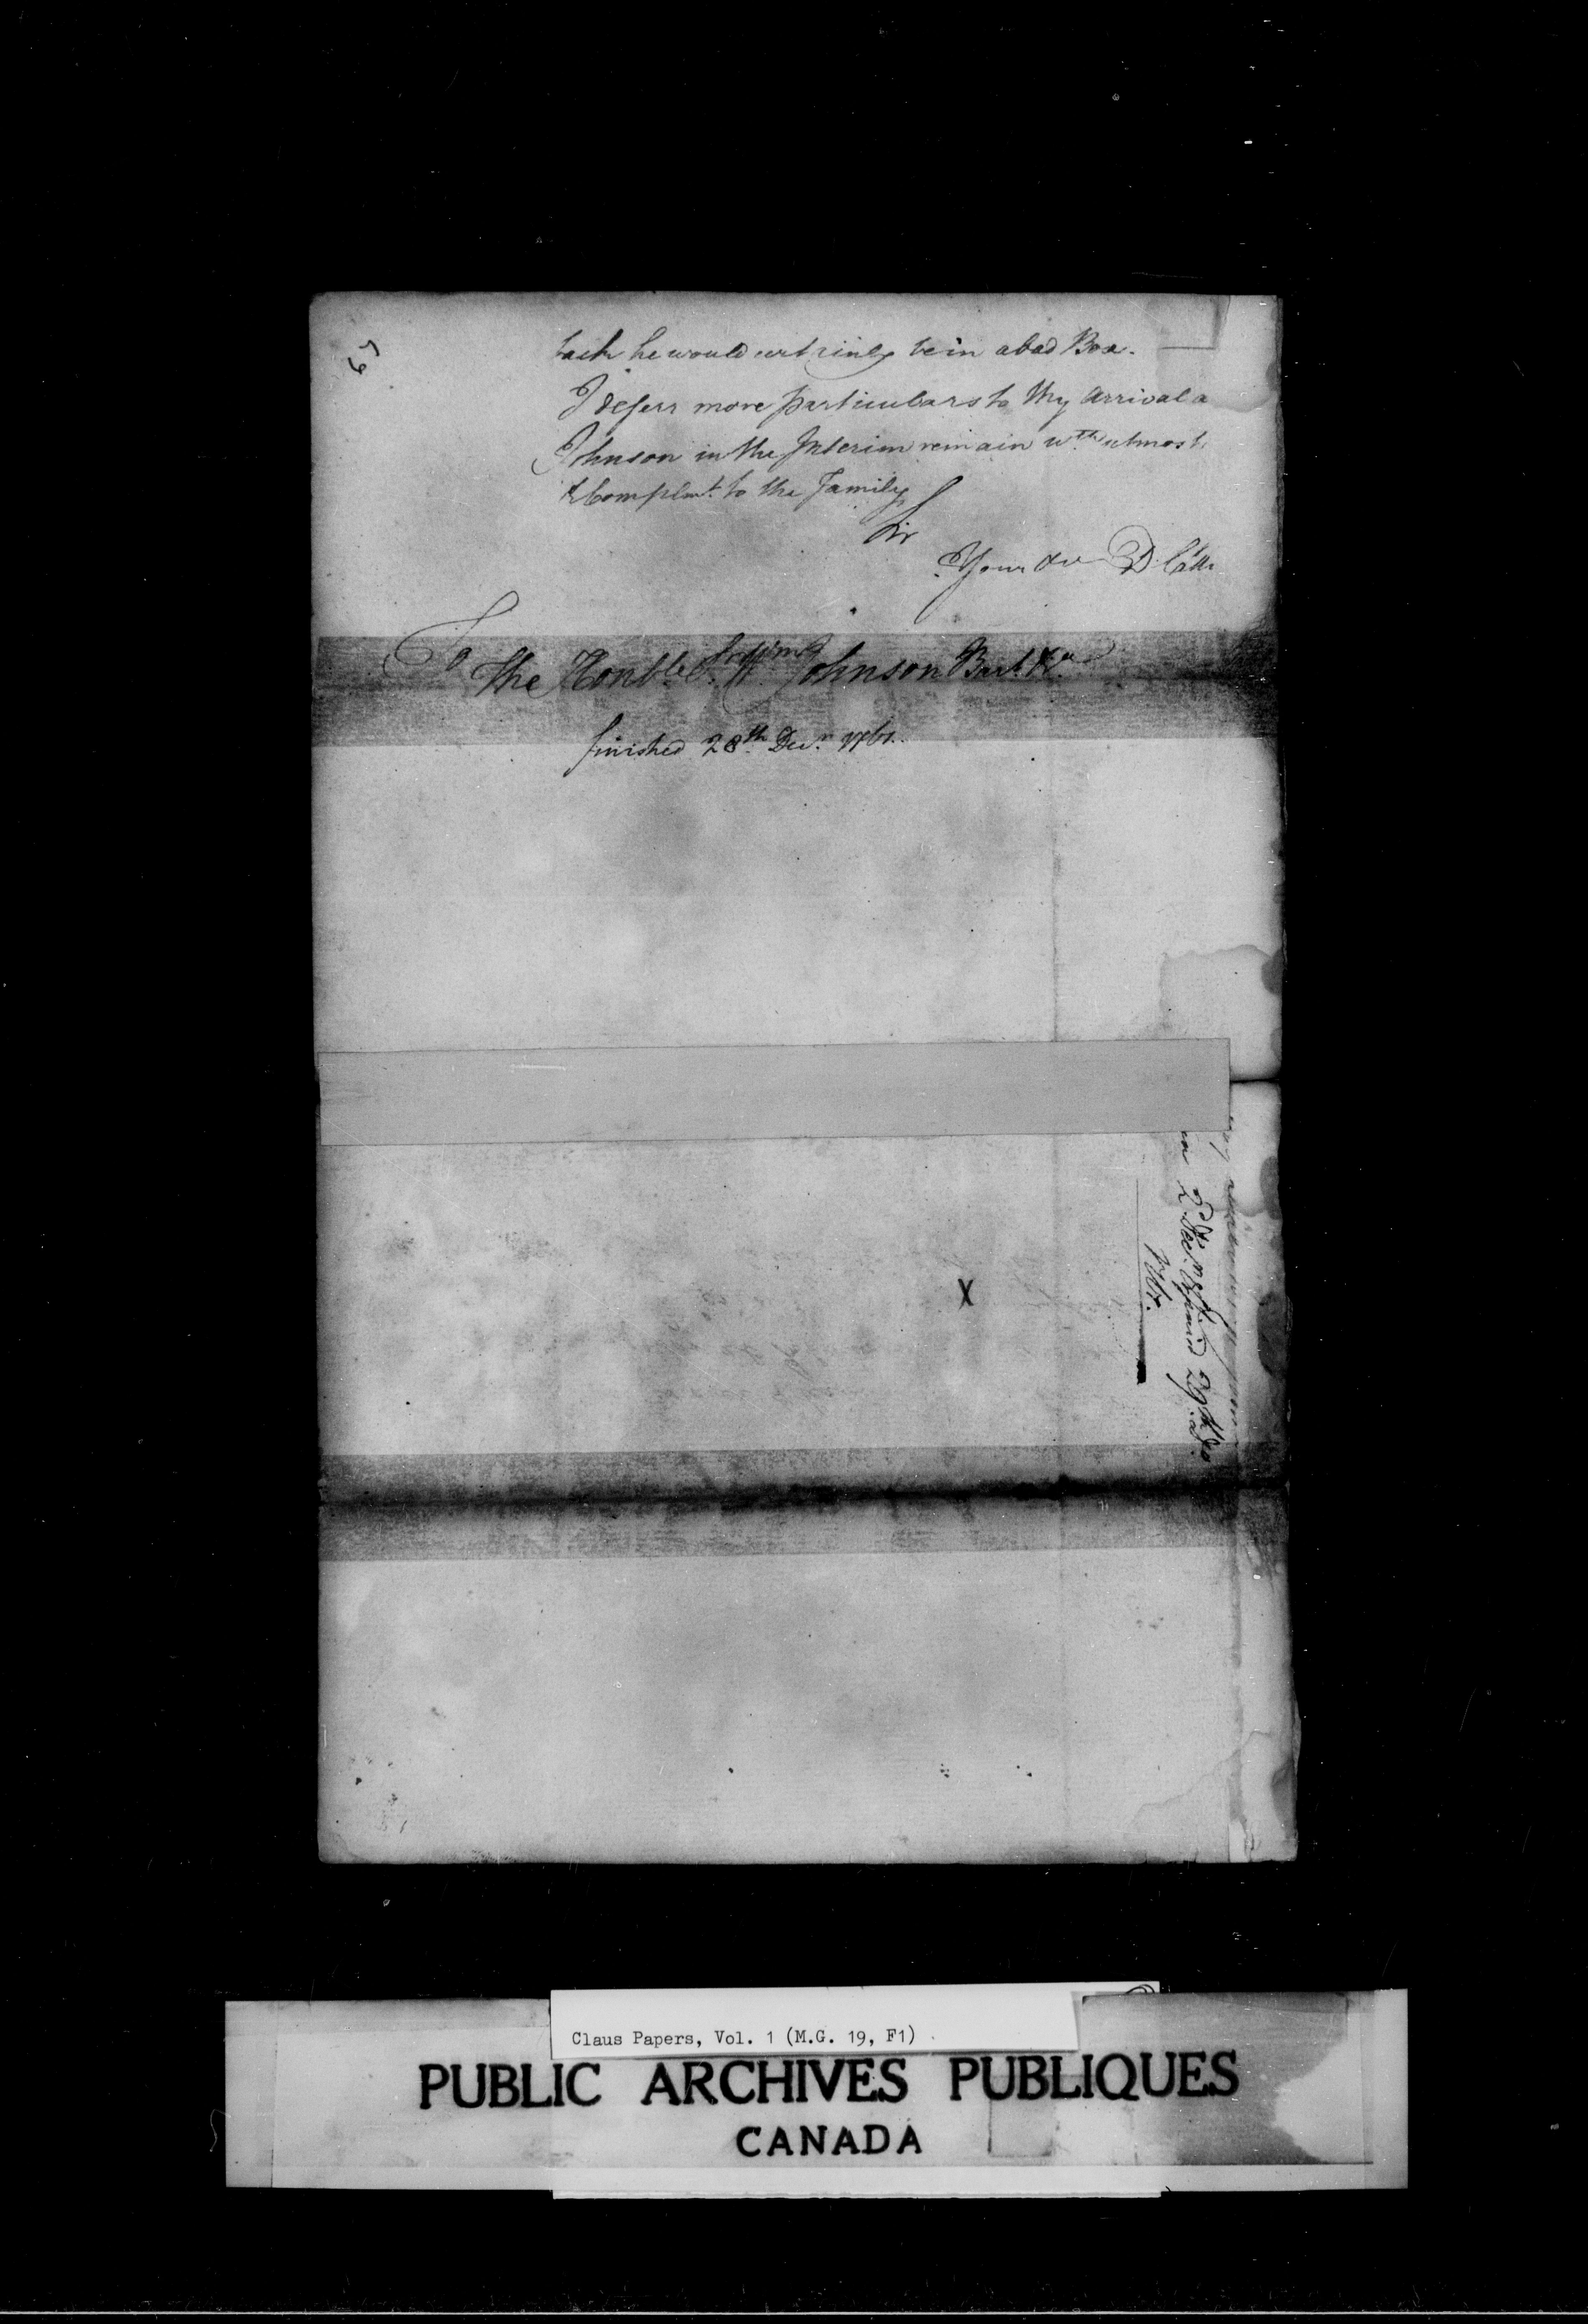 67
back he would certainly be in a bad Box.
I defers more particulars to My arrival a
Johnson in the Interim remain wth. utmost
& Complmt. to the Family
Sir
Your &c D Claus
To
The Honble. Sr. Wm. Johnson Bart. &ca
finished 28th. Decr. 1761.
1761.
X
Claus Papers, Vol. 1 (M.G. 19, F1)
PUBLIC ARCHIVES PUBLIQUES
CANADA